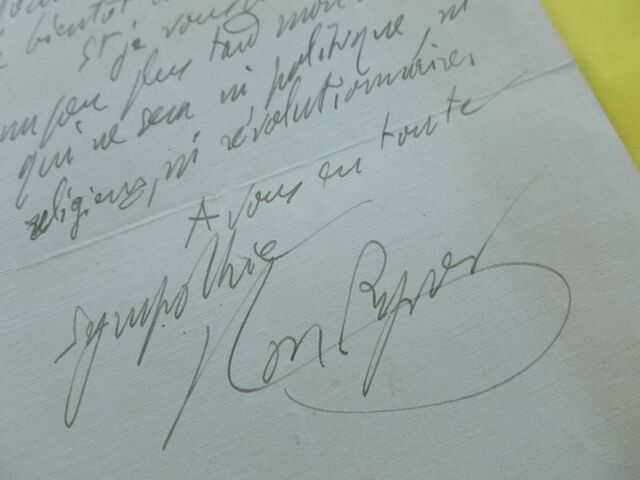 bientôt
et je vous
un peu plus tard mon
qui ne sera ni politique ni
religieux, ni révolutionnaire.
A vous en toute
sympathie
Han Ryner